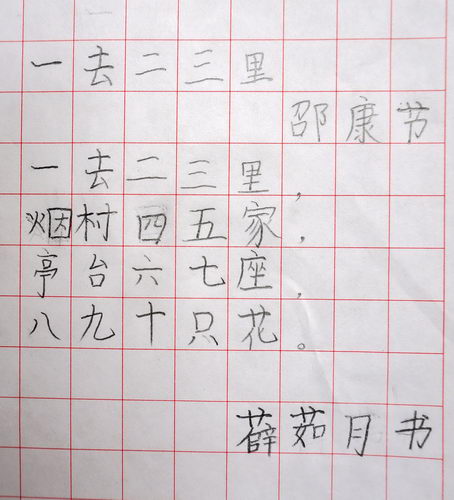 一去二三里
邵康节
一去二三里，
烟村四五家，
亭台六七座，
八九十只花。
薛茹月书